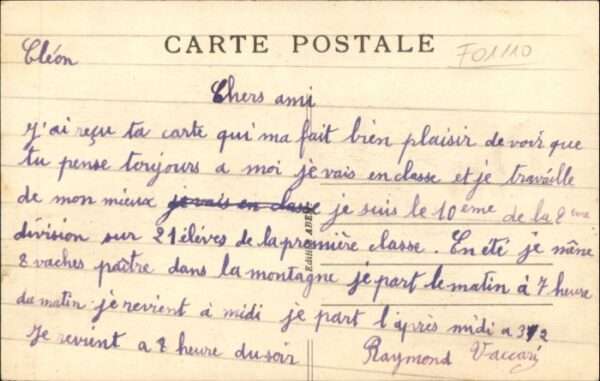 Cléon
CARTE POSTALE
F01110
Chers ami
J'ai reçu ta carte qui ma fait bien plaisir de voir que
tu pense toujours a moi je vais en classe et je travaille
de mon mieux je vais en classe je suis le 10eme de la 2eme
division sur 21 élèves de la première classe. En été je mène
8 vaches paître dans la montagne je part le matin à 7 heure
du matin je revient à midi je part l'après midi a 3
Je revient a 8 heure du soir
Raymond Vaccari